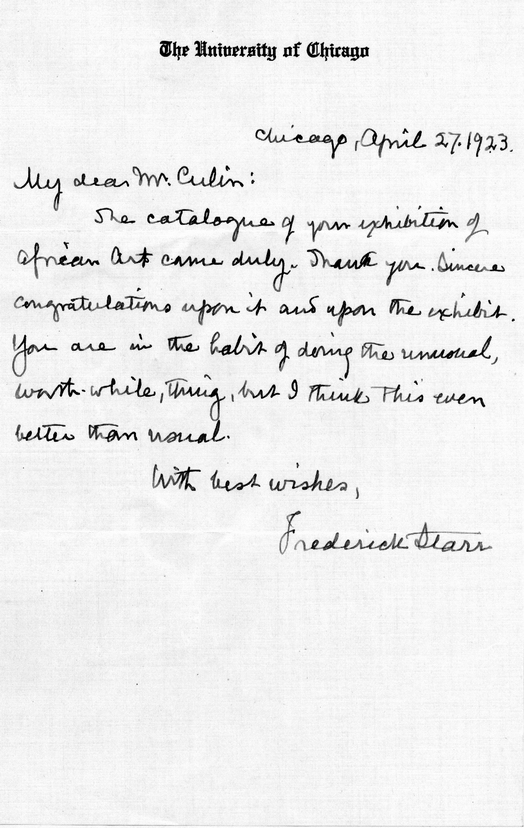 The University of Chicago
Chicago, April 27. 1923.
My dear Mr. Culin:
The catalogue of your exhibition of
African Art came duly. Thank you. Sincere
congratulations upon it and upon the exhibit.
You are in the habit of doing the unusual,
worth-while, thing, but I think this even
better than usual.
With best wishes,
Frederick Starr